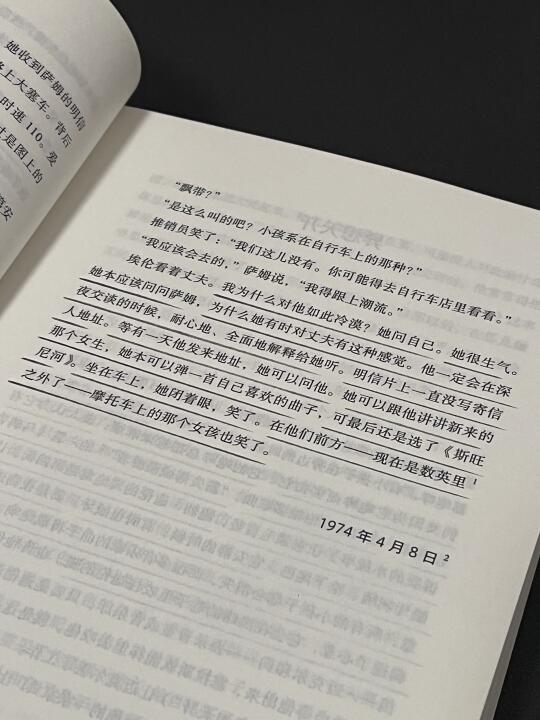 她收到萨姆的明信
路上大塞车。背后
时速110。爱
过是图上的
“飘带？”
“是这么叫的吧？小孩系在自行车上的那种？”
推销员笑了：“我们这儿没有。你可能得去自行车店里看看。”
“我应该会去的，”萨姆说，“我得跟上潮流。”
埃伦看着丈夫。我为什么对他如此冷漠？她问自己。她很生气。
她本应该问问萨姆，为什么她有时对丈夫有这种感觉。他一定会在深
夜交谈的时候，耐心地、全面地解释给她听。明信片上一直没写寄信
人地址。等有一天他发来地址，她可以问他。她可以跟他讲讲新来的
那个女生，她本可以弹一首自己喜欢的曲子，可最后还是选了《斯旺
尼河》。坐在车上，她闭着眼，笑了。在他们前方——现在是数英里¹
之外了——摩托车上的那个女孩也笑了。
1974年4月8日²